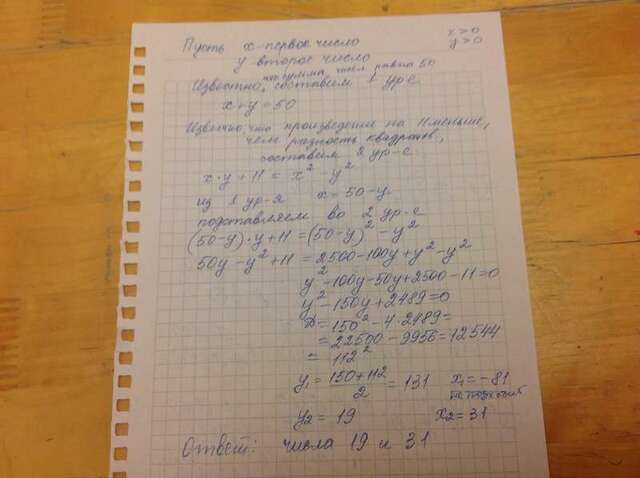 Пусть x-первое число
x>0
y>0
y второе число
что сумма чисел равна 50
Известно, составим 1 ур-е
x+y=50
Известно, что произведение на 11 меньше,
чем разность квадратов,
составим 2 ур-е
x·y+11=x²-y²
из 1 ур-я x=50-y
подставляем во 2 ур-е
(50-y)·y+11=(50-y)²-y²
50y-y²+11=2500-100y+y²-y²
y²-100y-50y+2500-11=0
y²-150y+2489=0
D=150²-4·2489=
=22500-9956=12544
=112²
y₁=150+112/2=131 x₁=-81
не подходит
y₂=19 x₂=31
Ответ: числа 19 и 31